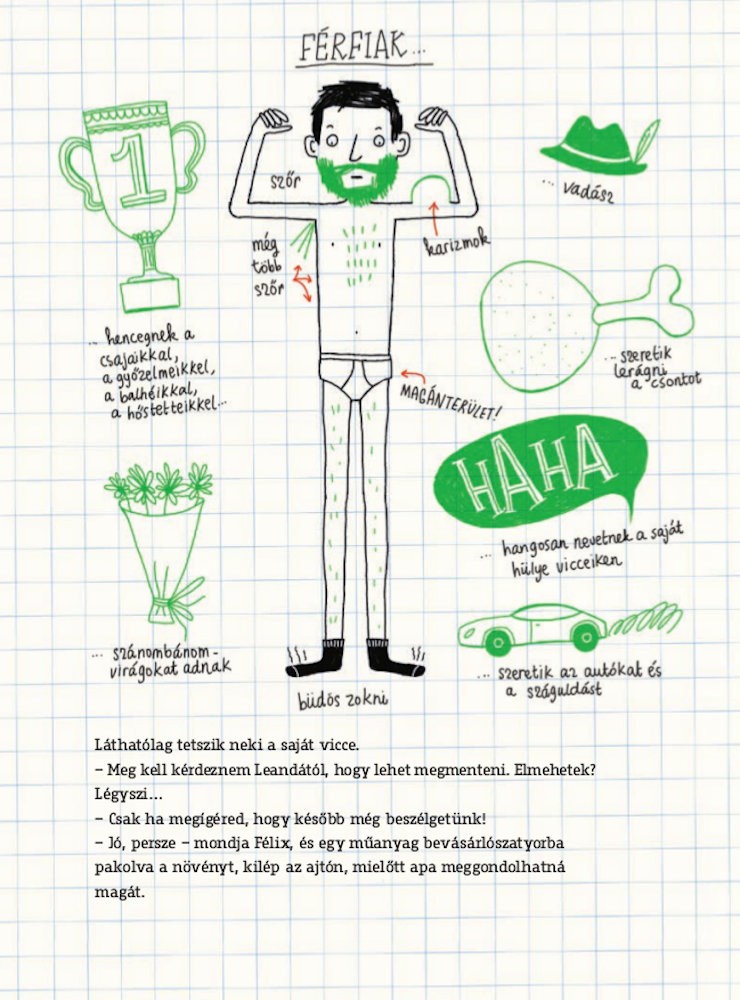 FÉRFIAK...
1
szőr
... vadász
még
több
szőr
karizmok
... hencegnek a
csajaikkal,
a győzelmeikkel,
a balhéikkal,
a hőstetteikkel...
... szeretik
lerágni
a csontot
MAGÁNTERÜLET!
HAHA
... hangosan nevetnek a saját
hülye vicceiken
... szánombánom-
virágokat adnak
... szeretik az autókat és
a száguldást
büdös zokni
Láthatólag tetszik neki a saját vicce.
– Meg kell kérdeznem Leandától, hogy lehet megmenteni. Elmehetek?
Légyszi...
– Csak ha megígéred, hogy később még beszélgetünk!
– Jó, persze – mondja Félix, és egy műanyag bevásárlószatyorba
pakolva a növényt, kilép az ajtón, mielőtt apa meggondolhatná
magát.